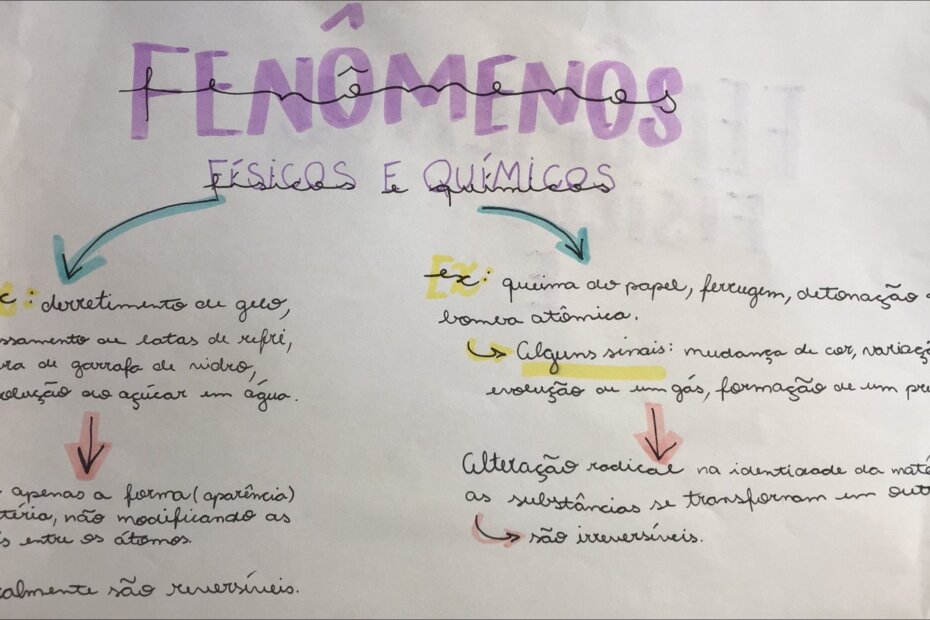 FENÔMENOS
fenômenos
FÍSICOS E QUÍMICOS
físicos e químicos
: derretimento de gelo,
de latas de refri,
de garrafa de vidro,
do açúcar em água.
apenas a forma (aparência)
não modificando as
entre os átomos.
são reversíveis.
Ex: queima do papel, ferrugem, detonação
bomba atômica.
Alguns sinais: mudança de cor,
evolução de um gás, formação de um
Alteração radical na identidade da
as substâncias se transformam em
são irreversíveis.